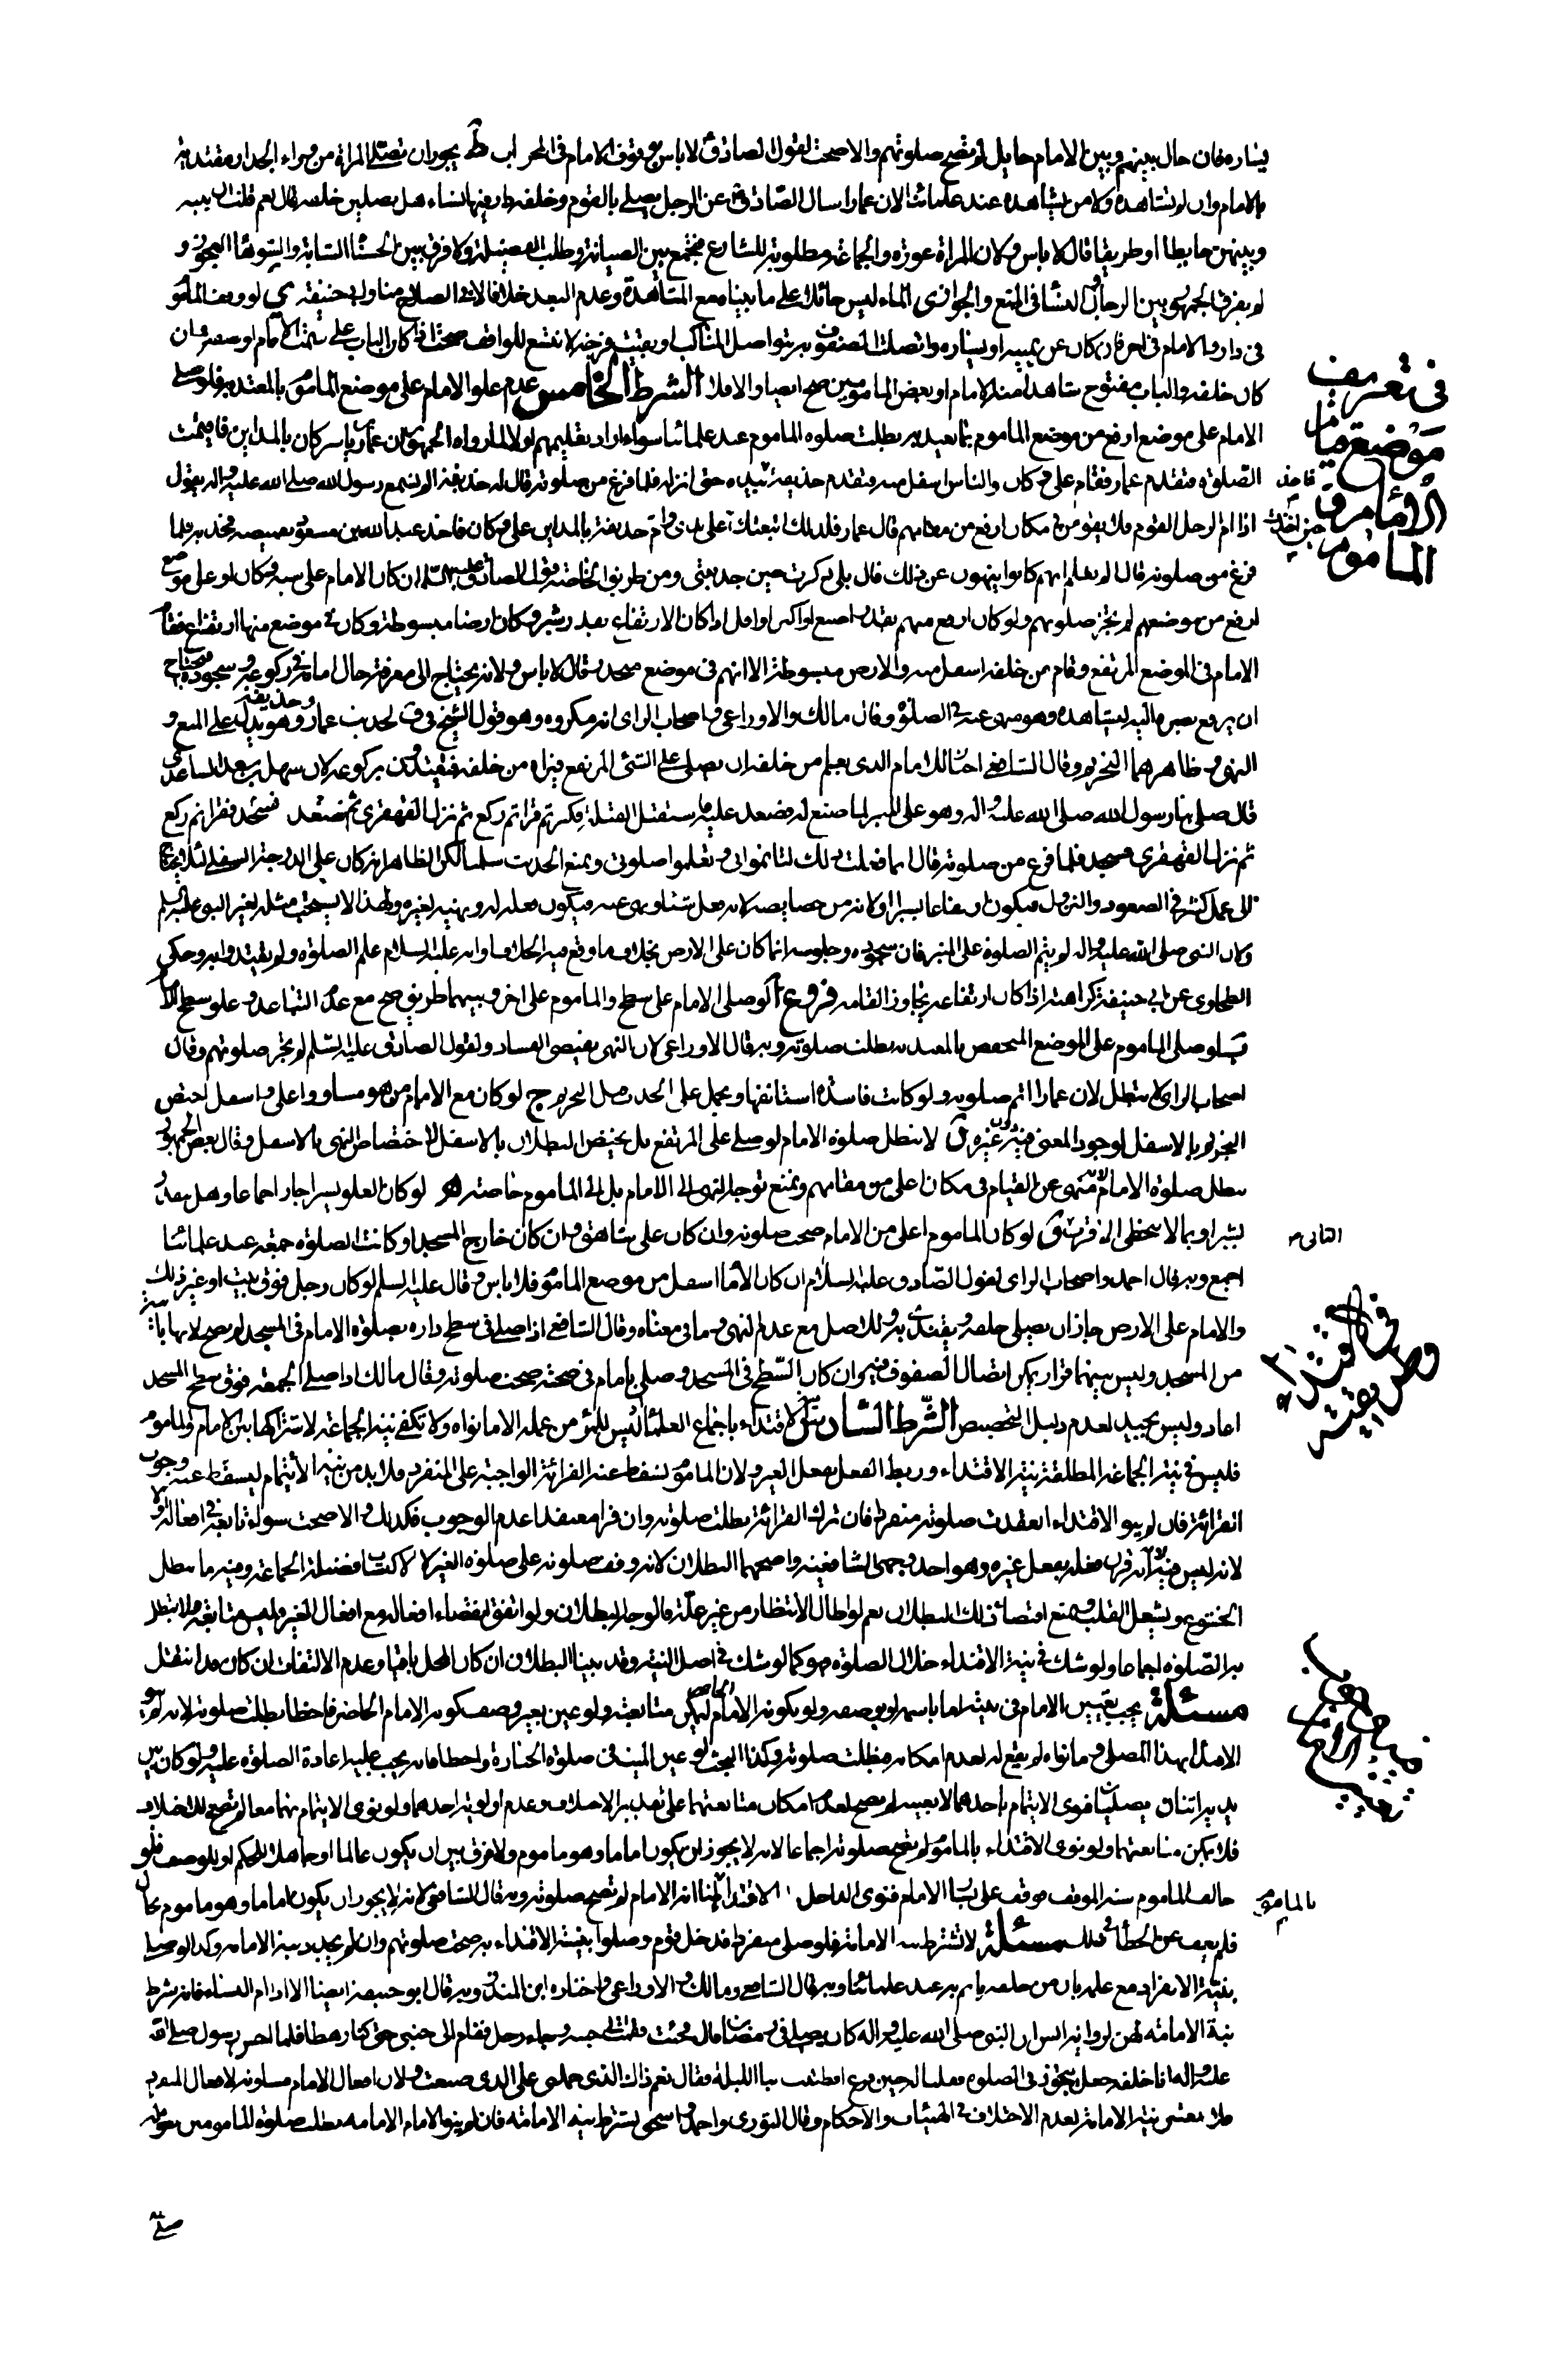 يساره فان حال بينهم وبين الامام حايل لم تصح صلوتهم والا صحت لقول الصادق لا باس بوقوف الامام فى المحراب ط يجوز ان تصلى المراة من وراء الجدار مقتدية
بالامام وان لم تشاهده ولا من يشاهده عند علمائنا لان عمارا سال الصادق عن الرجل يصلى بالقوم وخلفه دار فيها نساء هل يصلين خلفه قال نعم قلت ان بينه
وبينهن حايطا او طريقا قال لا باس ولان المراة عورة والجماعة مطلوبة للشارع فتجمع بين الصيانة وطلب الفضيلة ولا فرق بين الحسناء الشابة والشوهاء العجوز و
لم يفرق الجمهور بين الرجال والنساء فى المنع والجواز ى الماء ليس حائلا على ما بيناه مع المشاهدة وعدم البعد خلافا لابى الصلاح منا وابى حنيفة يى لو وقف الماموم
فى دار والامام فى اخرى فان كان عن يمينه او يساره واتصلت الصفوف بتواصل المناكب او بقيت فرجة لا تتسع للواقف صحت اذا كان الباب على سمت الامام او صفه وان
كان خلفه والباب مفتوح يشاهد منه الامام او بعض المامومين صح ايضا والا فلا الشرط الخامس عدم علو الامام على موضع الماموم بالمعتد به فلو صلى
الامام على موضع ارفع من موضع الماموم بما يعتد به بطلت صلوة الماموم عند علمائنا سواء اراد تعليمهم او لا لما رواه الجمهور ان عمار بن ياسر كان بالمداين فاقيمت
الصلوة فتقدم عمار فقام على دكان والناس اسفل منه فتقدم حذيفة بيده حتى انزله فلما فرغ من صلوته قال له حذيفة الم تسمع رسول الله صلى الله عليه واله يقول
فاخذ
اذا ام الرجل القوم فلا يقومن فى مكان ارفع من مقامهم قال عمار فلذلك اتبعتك حين اخذت على يدى وام حذيفة بالمداين على دكان فاخذ عبد الله بن مسعود بقميصه فجذبه فلما
فرغ من صلوته قال الم تعلم انهم كانوا ينهون عن ذلك قال بلى ذكرت حين جذبتنى ومن طريق الخاصة قول الصادق عليه السلم ان كان الامام على شبه دكان او على موضع
ارفع من موضعهم لم يجز صلوتهم ولو كان ارفع منهم بقدر اصبع او اكثر او اقل اذا كان الارتفاع بقدر شبر وكان ارضا مبسوطة وكان فى موضع منها ارتفاع فقام
الامام فى الموضع المرتفع وقام من خلفه اسفل منه والارض مبسوطة الا انهم فى موضع منحدر فقال لا باس ولانه يحتاج الى معرفة حال امامه فى ركوعه وسجوده فيحتاج
ان يرفع بصره اليه ليشاهده وهو منهى عنه فى الصلوة وقال مالك والاوزاعى واصحاب الراى انه مكروه وهو قول الشيخ فى ف لحديث عمار وحذيفة وهو يدل على المنع و
النهى وظاهرهما التحريم وقال الشافعى اختار للامام الذى يعلم من خلفه ان يصلى على الشئ المرتفع فيراه من خلفه فيقتدون بركوعه لان سهل بن سعد الساعدى
قال صلى بنا رسول الله صلى الله عليه واله وهو على المنبر لما صنع له فصعد عليه فاستقبل القبلة فكبر ثم قرا ثم ركع ثم نزل القهقرى فسجد ثم صعد فقرا ثم ركع
ثم نزل القهقرى فسجد فلما فرغ من صلوته قال انما فعلت ذلك لتاتموا بى وتعلموا صلوتى ونمنع الحديث سلمنا لكن الظاهر انه كان على الدرجة السفلى لئلا يحتاج
الى عمل كثير فى الصعود والنزول فيكون ارتفاعا يسيرا ولانه من خصايصه لانه فعل شيئا ونهى عنه فيكون فعله له ونهيه لغيره ولهذا لا يستحب مثله لغير النبى عليه السلم
وكان النبى صلى الله عليه واله لم يتم الصلوة على المنبر فان سجوده وجلوسه انما كان على الارض بخلاف ما وقع فيه الخلاف او انه عليه السلام علم الصلوة ولم يقتد به وحكى
الطحاوى عن ابى حنيفة كراهته اذا كان ارتفاعه يجاوز القامة فروع آ لو صلى الامام على سطح والماموم على اخر وبينهما طريق صح مع عدم التباعد وعلو سطح الامام
ب لو صلى الماموم على الموضع المنخفض بالمعتد به بطلت صلوته وبه قال الاوزاعى لان النهى يقتضى الفساد ولقول الصادق عليه السلم لم يجز صلوتهم وقال
اصحاب الراى لا تبطل لان عمارا اتم صلوته ولو كانت فاسدة استانفها ويحمل على الحدث قبل التحريم ج لو كان مع الامام من هو مساو واعلى واسفل اختص
التحريم بالاسفل لوجود المعنى فيه دون غيره د لا تبطل صلوة الامام لو صلى على المرتفع بل يختص البطلان بالاسفل لاختصاص النهى بالاسفل وقال بعض الجمهور
تبطل صلوة الامام لانه منهى عن القيام فى مكان اعلى من مقامهم ونمنع توجه النهى الى الامام بل الى الماموم خاصة ه لو كان العلو يسيرا جاز اجماعا وهل يتقدر
بشبر او بما لا يتخطى الاقرب الثانى و لو كان الماموم اعلى من الامام صحت صلوته وان كان على شاهق وان كان خارج المسجد او كانت الصلوة جمعة عند علمائنا
اجمع وبه قال احمد واصحاب الراى لقول الصادق عليه السلام ان كان الامام اسفل من موضع الماموم فلا باس وقال عليه السلم لو كان رجل فوق بيت او غير ذلك
والامام على الارض جاز ان يصلى خلفه ويقتدى به وللاصل مع عدم النهى وما فى معناه وقال الشافعى اذا صلى فى سطح داره بصلوة الامام فى المسجد لم يصح لانها باينة
من المسجد وليس بينهما قرار يمكن اتصال الصفوف فيه وان كان السطح فى المسجد وصلى بامام فى صحنه صحت صلوته وقال مالك اذا صلى الجمعة فوق سطح المسجد
اعاد وليس بجيد لعدم دليل التخصيص الشرط السادس نية الاقتداء باجماع العلماء اذ ليس للمرء من عمله الا ما نواه ولا تكفى نية الجماعة لاشتراكها بين الامام والماموم
فليس فى نية الجماعة المطلقة نية الاقتداء وربط الفعل بفعل الغير ولان الماموم يسقط عنه القرائة الواجبة على المنفرد فلا بد من نية الايتمام ليسقط عنه وجوب
القرائة فان لم ينو الاقتداء انعقدت صلوته منفردا فان ترك القرائة بطلت صلوته وان قرا معتقدا عدم الوجوب فكذلك والا صحت سواء تابعه فى افعاله او لا
لانه ليس فيه الا انه قرن فعله بفعل غيره وهو احد وجهى الشافعية واصحهما البطلان لانه وقف صلوته على صلوة الغير لا لاكتساب فضيلة الجماعة وفيه ما يبطل
الخشوع ويشغل القلب ونمنع اقتضاء ذلك البطلان نعم لو اطال الانتظار من غير علة فالوجه البطلان ولو اتفق انقضاء افعاله مع افعال الغير وليس متابعة فلا تبطل
به الصلوة اجماعا ولو شك فى نية الاقتداء خلال الصلوة فهو كما لو شك فى اصل النية وقد بينا البطلان ان كان المحل باقيا وعدم الالتفات ان كان قد انتقل
مسئلة يجب تعيين الامام فى نيته اما باسمه او بوصفه ولو بكونه الامام الحاضر ليمكن متابعته ولو عين بغير وصف كونه الامام الحاضر فاخطا بطلت صلوته لانه لم ينو
الايتمام بهذا المصلى وما نواه لم يقع له لعدم امكانه فبطلت صلوته وكذا البحث لو عين الميت فى صلوة الجنازة واخطا فانه يجب عليه اعادة الصلوة عليه ولو كان بين
يديه اثنان يصليان فنوى الايتمام باحدهما لا بعينه لم يصح لعدم امكان متابعتهما على تقدير الاختلاف وعدم اولوية احدهما ولو نوى الايتمام بهما معا لم تصح للاختلاف
فلا يمكن متابعتهما ولو نوى الاقتداء بالماموم لم تصح صلوته اجماعا لانه لا يجوز ان يكون اماما وهو ماموم ولا فرق بين ان يكون عالما او جاهلا بالحكم او بالوصف فلو
خالف الماموم سنة الموقف فوقف على يسار الامام فنوى الداخل الاقتداء بالماموم ظنا انه الامام لم تصح صلوته وبه قال الشافعى لانه لا يجوز ان يكون اماما وهو ماموم بحال
فلم يعف عن الخطا فى ذلك مسئلة لا تشترط نية الامامة فلو صلى منفردا فدخل قوم وصلوا بنية الاقتداء به صحت صلوتهم وان لم يجدد نية الامامة وكذا لو صلى
بنية الانفراد مع علمه بان من خلفه ياتم به عند علمائنا وبه قال الشافعى ومالك والاوزاعى واختاره ابن المنذر وبه قال ابو حنيفة ايضا الا اذا ام النساء فانه شرط
نية الامامة لهن لرواية انس ان النبى صلى الله عليه واله كان يصلى فى رمضان قال فجئت فقمت الى جنبه وجاء رجل فقام الى جنبى حتى كنا رهطا فلما احس رسول صلى الله
عليه واله انا خلفه جعل يتجوز فى الصلوة فقلنا له حين فرغ افطنت بنا الليلة فقال نعم ذاك الذى حملنى على الذى صنعت ولان افعال الامام مساوية لافعال المنفرد
فلا معنى نية الامامة لعدم الاختلاف فى الهيئات والاحكام وقال الثورى واحمد واسحق يشترط نية الامامة فان لم ينو الامام الامامة بطلت صلوة المامومين
صلى
فى تعريف
موضع قيام
الامام و
الماموم
فى الاقتداء
وطريقته
فيما يتعلق ب
تعيين الامام